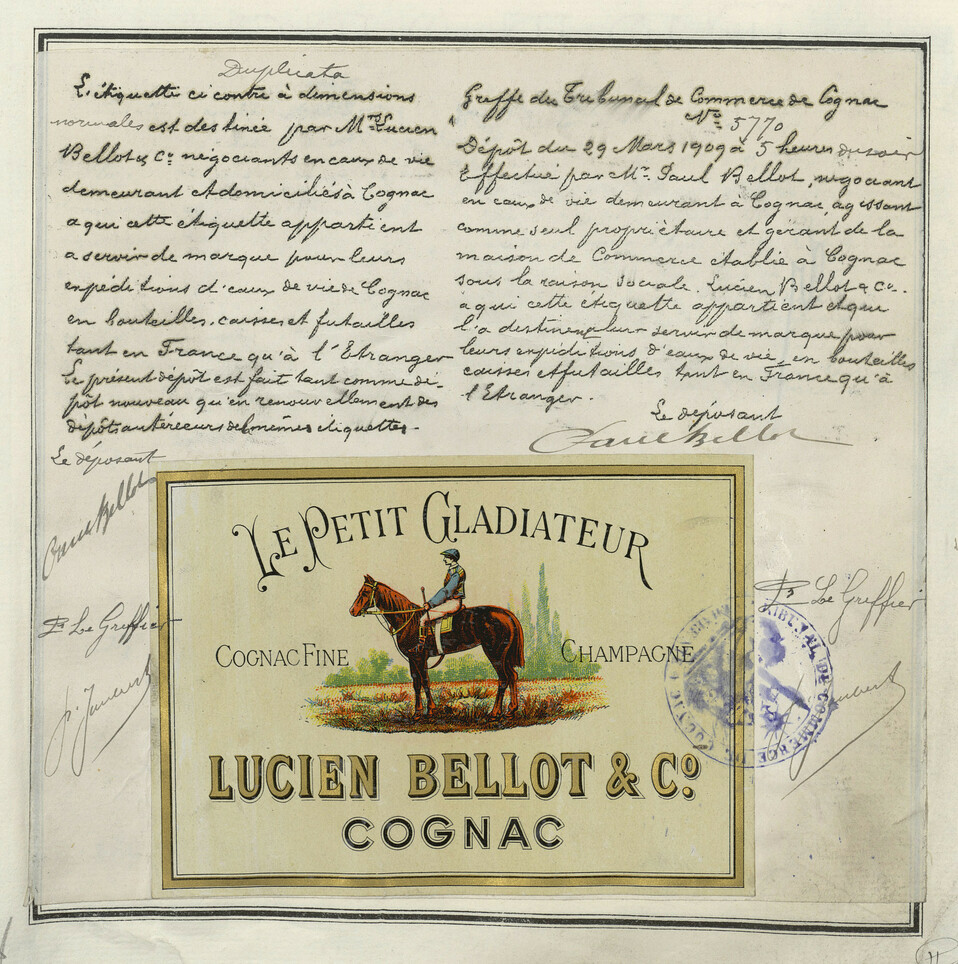 Duplicata
L'étiquette ci contre à dimensions
normales est destinée par Mrs Lucien
Bellot & Co négociants en eaux de vie
demeurant et domiciliés à Cognac
a qui cette étiquette appartient
a servir de marque pour leurs
expéditions d'eaux de vie de Cognac
en bouteilles, caisses et futailles
tant en France qu'à l'Etranger
Le présent dépôt est fait tant comme dé-
pôt nouveau qu'en renouvellement des
dépôts antérieurs de mêmes étiquettes.
Le déposant
Paul Bellot
Pr Le Greffier
Greffe du Tribunal de Commerce de Cognac
No 5770
Dépôt du 29 Mars 1909 à 5 heures du soir
Effectué par Mr. Paul Bellot, négociant
en eaux de vie demeurant à Cognac, agissant
comme seul propriétaire et gérant de la
maison de Commerce établie à Cognac
sous la raison sociale. Lucien Bellot & Co.
a qui cette étiquette appartient et que
l'a destinée pour servir de marque pour
leurs expéditions d'eaux de vie, en bouteilles
caisses et futailles tant en France qu'à
l'Etranger.
Le déposant
Paul Bellot
Pr Le Greffier
LE PETIT GLADIATEUR
COGNAC FINE CHAMPAGNE
LUCIEN BELLOT & Co.
COGNAC
TRIBUNAL DE COMMERCE DE COGNAC